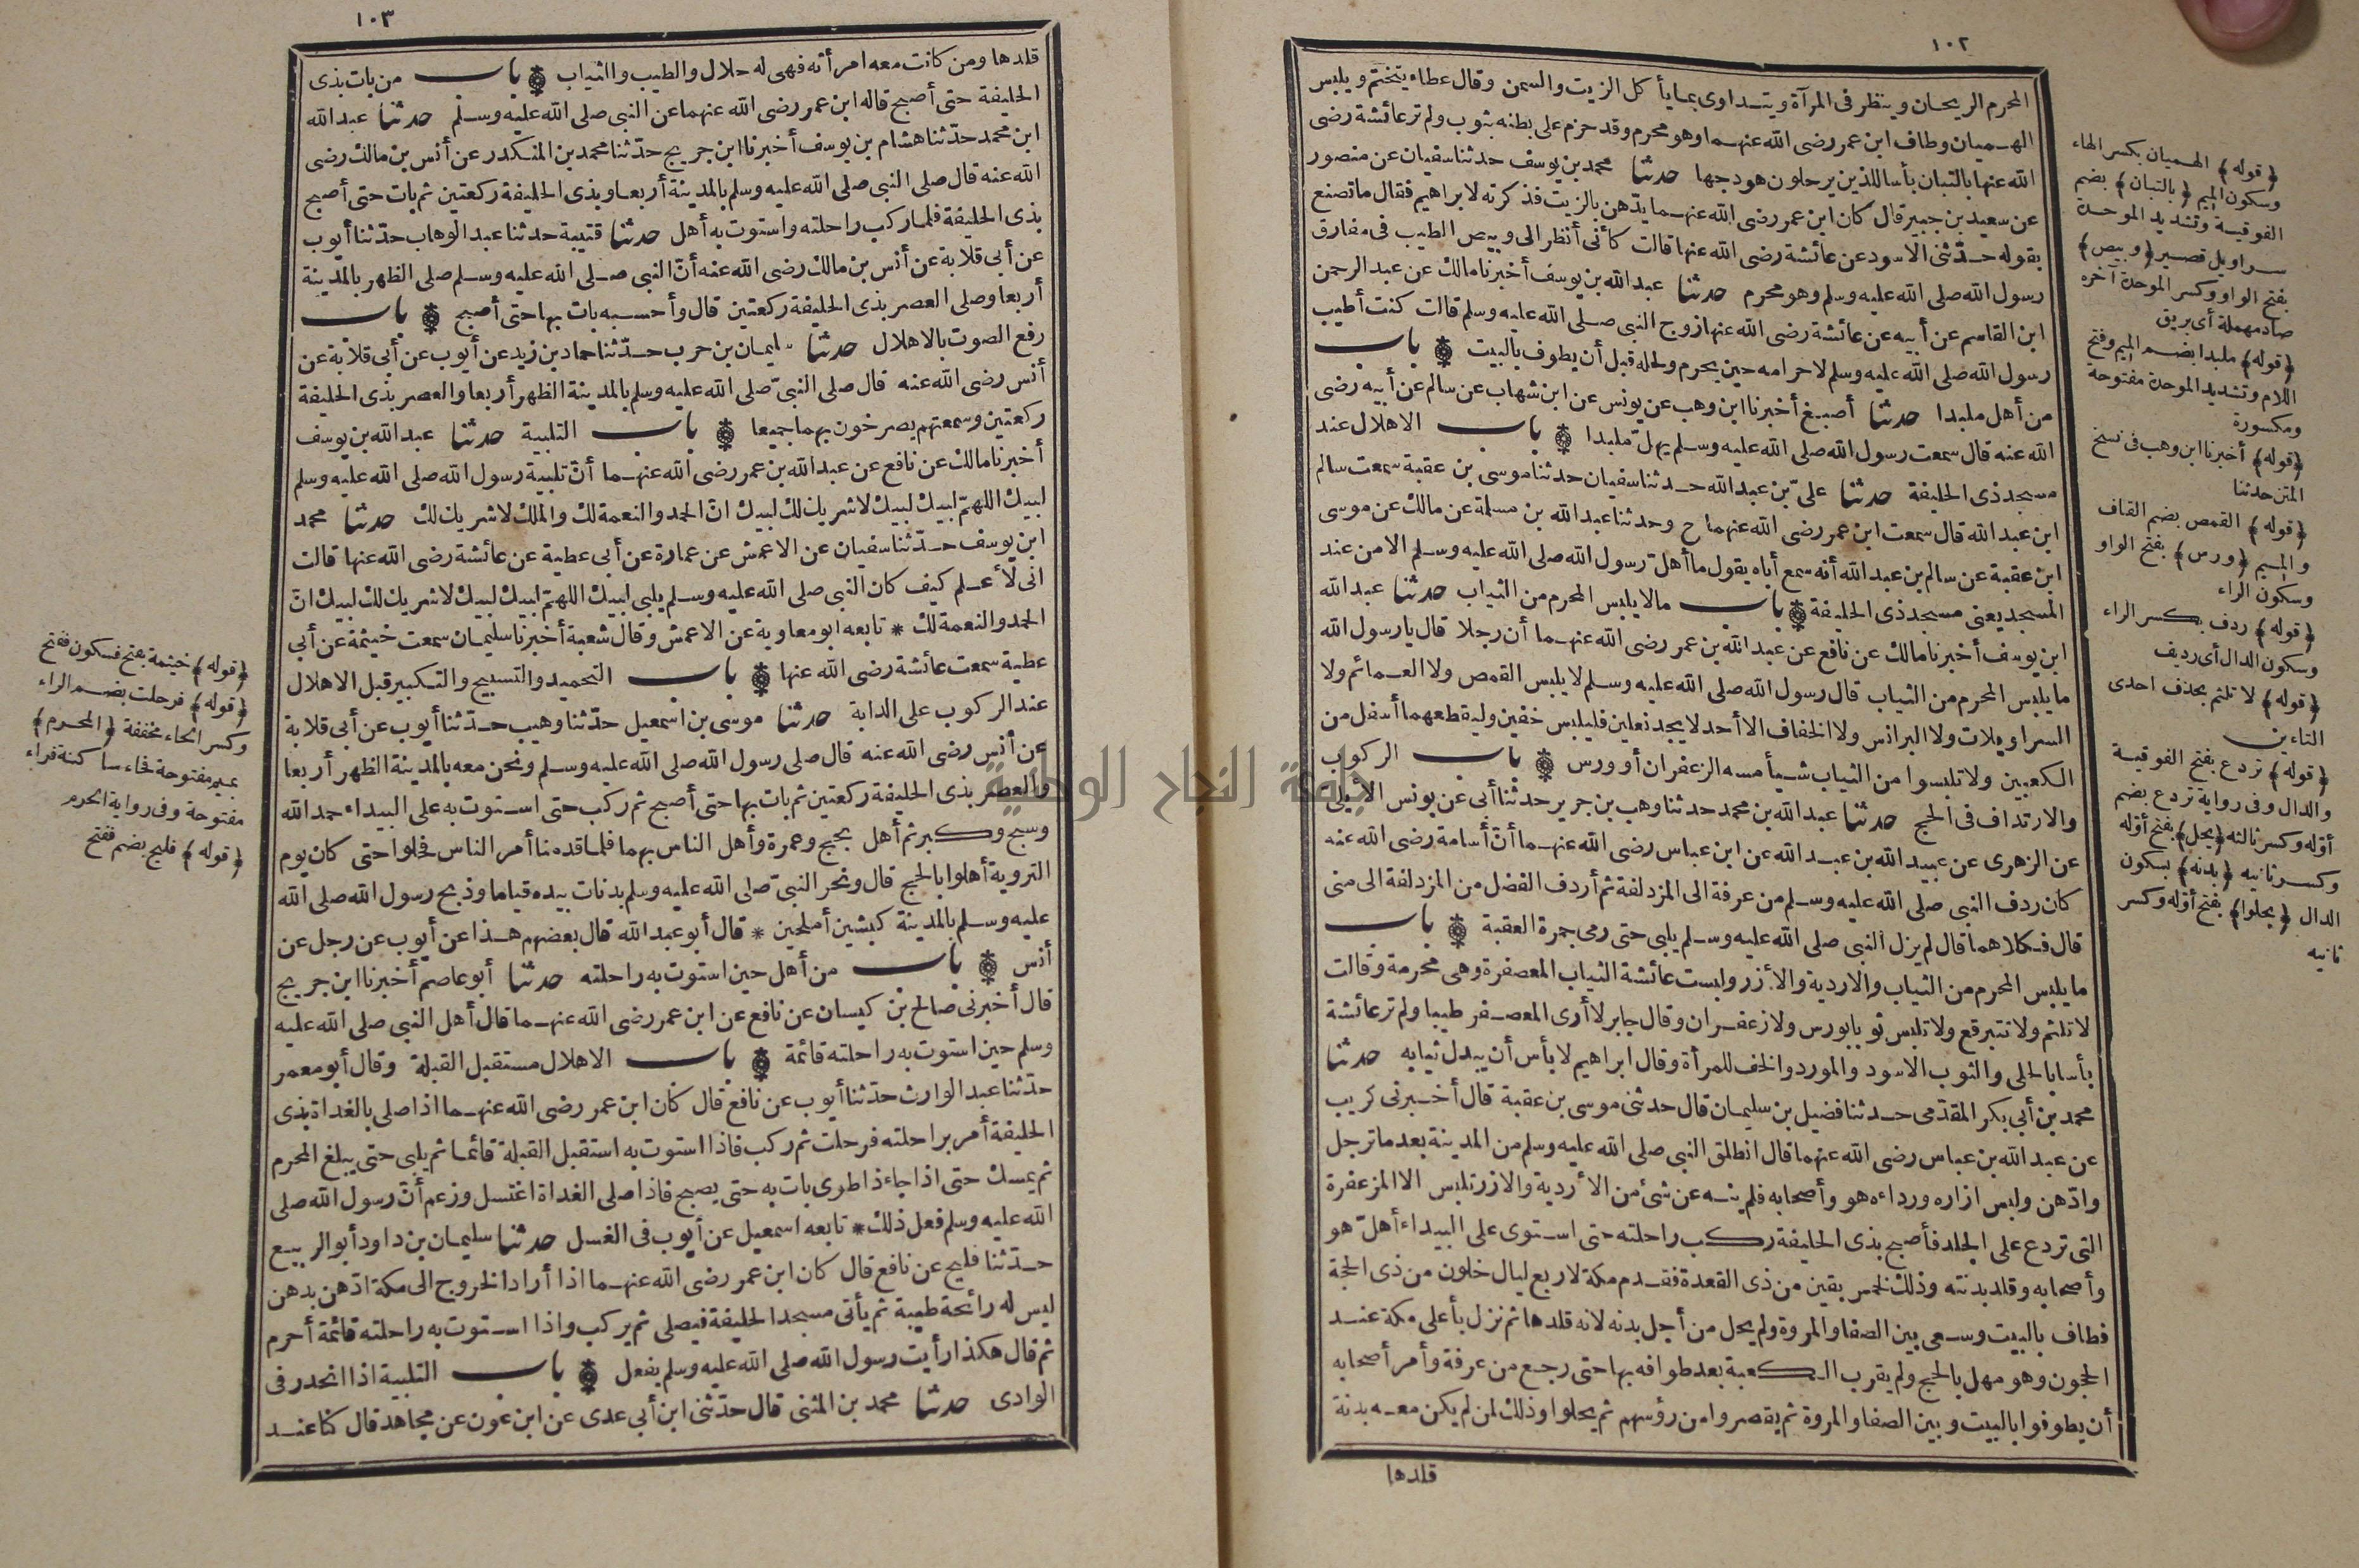 ١٠٢
المحرم الريحان وينظر فى المرآة ويتداوى بما يأكل الزيت والسمن وقال عطاء يتختم ويلبس
الهميان وطاف ابن عمر رضى الله عنهما وهو محرم وقد حزم على بطنه بثوب ولم تر عائشة رضى
الله عنها بالتبان بأسا للذين يرحلون هودجها حدثنا محمد بن يوسف حدثنا سفيان عن منصور
عن سعيد بن جبير قال كان ابن عمر رضى الله عنهما يدّهن بالزيت فذكرته لابراهيم فقال ما تصنع
بقوله حدّثنى الاسود عن عائشة رضى الله عنها قالت كأنى أنظر الى وبيص الطيب فى مفارق
رسول الله صلى الله عليه وسلم وهو محرم حدثنا عبد الله بن يوسف أخبرنا مالك عن عبد الرحمن
ابن القاسم عن أبيه عن عائشة رضى الله عنها زوج النبى صلى الله عليه وسلم قالت كنت أطيب
رسول الله صلى الله عليه وسلم لاحرامه حين يحرم ولحله قبل أن يطوف بالبيت باب
من أهل ملبدا حدثنا أصبغ أخبرنا ابن وهب عن يونس عن ابن شهاب عن سالم عن أبيه رضى
الله عنه قال سمعت رسول الله صلى الله عليه وسلم يهلّ ملبدا باب الاهلال عند
مسجد ذى الحليفة حدثنا علىّ بن عبد الله حدثنا سفيان حدثنا موسى بن عقبة سمعت سالم
ابن عبد الله قال سمعت ابن عمر رضى الله عنهما ح وحدثنا عبد الله بن مسلمة عن مالك عن موسى
ابن عقبة عن سالم بن عبد الله أنه سمع أباه يقول ما أهلّ رسول الله صلى الله عليه وسلم الا من عند
المسجد يعنى مسجد ذى الحليفة باب مالا يلبس المحرم من الثياب حدثنا عبد الله
ابن يوسف أخبرنا مالك عن نافع عن عبد الله بن عمر رضى الله عنهما أن رجلا قال يا رسول الله
ما يلبس المحرم من الثياب قال رسول الله صلى الله عليه وسلم لا يلبس القمص ولا العمائم ولا
السراويلات ولا البرانس ولا الخفاف الا أحد لا يجد نعلين فليلبس خفين وليقطعهما أسفل من
الكعبين ولا تلبسوا من الثياب شيأ مسه الزعفران أو ورس باب الركوب
والارتداف فى الحج حدثنا عبد الله بن محمد حدثنا وهب بن جرير حدثنا أبى عن يونس الايلى
عن الزهرى عن عبيد الله بن عبد الله عن ابن عباس رضى الله عنهما أنّ أسامة رضى الله عنه
كان ردف النبى صلى الله عليه وسلم من عرفة الى المزدلفة ثم أردف الفضل من المزدلفة الى منى
قال فكلاهما قال لم يزل النبى صلى الله عليه وسلم يلبى حتى رمى جمرة العقبة باب
ما يلبس المحرم من الثياب والاردية والأزر ولبست عائشة الثياب المعصفرة وهى محرمة وقالت
لا تلثم ولا تتبرقع ولا تلبس ثوبا بورس ولا زعفران وقال جابر لا أرى المعصفر طيبا ولم تر عائشة
بأسا بالحلى والثوب الاسود والمورد والخف للمرأة وقال ابراهيم لا بأس أن يبدل ثيابه حدثنا
محمد بن أبى بكر المقدّمى حدثنا فضيل بن سليمان قال حدثنى موسى بن عقبة قال أخبرنى كريب
عن عبد الله بن عباس رضى الله عنهما قال انطلق النبى صلى الله عليه وسلم من المدينة بعد ما ترجل
وادّهن ولبس ازاره ورداءه هو وأصحابه فلم ينه عن شئ من الأردية والازر تلبس الا المزعفرة
التى تردع على الجلد فأصبح بذى الحليفة ركب راحلته حتى استوى على البيداء أهلّ هو
وأصحابه وقلد بدنته وذلك لخمس بقين من ذى القعدة فقدم مكة لاربع ليال خلون من ذى الحجة
فطاف بالبيت وسعى بين الصفا والمروة ولم يحل من أجل بدنه لانه قلدها ثم نزل بأعلى مكة عند
الحجون وهو مهل بالحج ولم يقرب الكعبة بعد طوافه بها حتى رجع من عرفة وأمر أصحابه
أن يطوفوا بالبيت وبين الصفا والمروة ثم يقصروا من رؤسهم ثم يحلوا وذلك لمن لم يكن معه بدنة
قلدها
(قوله) الهميان بكسر الهاء
وسكون الميم (بالتبان) بضم
الفوقية وتشديد الموحدة
سراويل قصير (وبيص)
بفتح الواو وكسر الموحدة آخره
صاد مهملة أى بريق
(قوله) ملبدا بضم الميم وفتح
اللام وتشديد الموحدة مفتوحة
ومكسورة
(قوله) أخبرنا ابن وهب فى نسخ
المتن حدثنا
(قوله) القمص بضم القاف
والميم (ورس) بفتح الواو
وسكون الراء
(قوله) ردف بكسر الراء
وسكون الدال أى رديف
(قوله) لا تلثم بحذف احدى
التاءين
(قوله) تردع بفتح الفوقية
والدال وفى رواية تردع بضم
أوله وكسر ثالثه (يحل) بفتح أوله
وكسر ثانيه (بدنه) بسكون
الدال (يحلوا) بفتح أوله وكسر
ثانيه
١٠٣
قلدها ومن كانت معه امرأته فهى له حلال والطيب والثياب باب من بات بذى
الحليفة حتى أصبح قاله ابن عمر رضى الله عنهما عن النبى صلى الله عليه وسلم حدثنا عبد الله
ابن محمد حدّثنا هشام بن يوسف أخبرنا ابن جريج حدّثنا محمد بن المنكدر عن أنس بن مالك رضى
الله عنه قال صلى النبى صلى الله عليه وسلم بالمدينة أربعا وبذى الحليفة ركعتين ثم بات حتى أصبح
بذى الحليفة فلما ركب راحلته واستوت به أهل حدثنا قتيبة حدثنا عبد الوهاب حدّثنا أيوب
عن أبى قلابة عن أنس بن مالك رضى الله عنه أنّ النبى صلى الله عليه وسلم صلى الظهر بالمدينة
أربعا وصلى العصر بذى الحليفة ركعتين قال وأحسبه بات بها حتى أصبح باب
رفع الصوت بالاهلال حدثنا سليمان بن حرب حدّثنا حماد بن زيد عن أيوب عن أبى قلابة عن
أنس رضى الله عنه قال صلى النبىّ صلى الله عليه وسلم بالمدينة الظهر أربعا والعصر بذى الحليفة
ركعتين وسمعتهم يصرخون بهما جميعا باب التلبية حدثنا عبد الله بن يوسف
أخبرنا مالك عن نافع عن عبد الله بن عمر رضى الله عنهما أنّ تلبية رسول الله صلى الله عليه وسلم
لبيك اللهمّ لبيك لبيك لا شريك لك لبيك انّ الحمد والنعمة لك والملك لا شريك لك حدثنا محمد
ابن يوسف حدّثنا سفيان عن الاعمش عن عمارة عن أبى عطية عن عائشة رضى الله عنها قالت
انى لأعلم كيف كان النبى صلى الله عليه وسلم يلبى لبيك اللهمّ لبيك لبيك لا شريك لك لبيك انّ
الحمد والنعمة لك * تابعه ابو معاوية عن الاعمش وقال شعبة أخبرنا سليمان سمعت خيثمة عن أبى
عطية سمعت عائشة رضى الله عنها باب التحميد والتسبيح والتكبير قبل الاهلال
عند الركوب على الدابة حدثنا موسى بن اسمعيل حدّثنا وهيب حدّثنا أيوب عن أبى قلابة
عن أنس رضى الله عنه قال صلى رسول الله صلى الله عليه وسلم ونحن معه بالمدينة الظهر أربعا
والعصر بذى الحليفة ركعتين ثم بات بها حتى أصبح ثم ركب حتى استوت به على البيداء حمد الله
وسبح وكبر ثم أهل بحج وعمرة وأهل الناس بهما فلما قدمنا أمر الناس فحلوا حتى كان يوم
التروية أهلوا بالحج قال ونحر النبىّ صلى الله عليه وسلم بدنات بيده قياما وذبح رسول الله صلى الله
عليه وسلم بالمدينة كبشين أملحين * قال أبو عبد الله قال بعضهم هذا عن أيوب عن رجل عن
أنس باب من أهل حين استوت به راحلته حدثنا أبو عاصم أخبرنا ابن جريج
قال أخبرنى صالح بن كيسان عن نافع عن ابن عمر رضى الله عنهما قال أهل النبى صلى الله عليه
وسلم حين استوت به راحلته قائمة باب الاهلال مستقبل القبلة وقال أبو معمر
حدّثنا عبد الوارث حدّثنا أيوب عن نافع قال كان ابن عمر رضى الله عنهما اذا صلى بالغداة بذى
الحليفة أمر براحلته فرحلت ثم ركب فاذا استوت به استقبل القبلة قائما ثم يلبى حتى يبلغ المحرم
ثم يمسك حتى اذا جاء ذا طوى بات به حتى يصبح فاذا صلى الغداة اغتسل وزعم أنّ رسول الله صلى
الله عليه وسلم فعل ذلك * تابعه اسمعيل عن أيوب فى الغسل حدثنا سليمان بن داود أبو الربيع
حدّثنا فليح عن نافع قال كان ابن عمر رضى الله عنهما اذا أراد الخروج الى مكة ادّهن بدهن
ليس له رائحة طيبة ثم يأتى مسجد الحليفة فيصلى ثم يركب واذا استوت به راحلته قائمة أحرم
ثم قال هكذا رأيت رسول الله صلى الله عليه وسلم يفعل باب التلبية اذا انحدر فى
الوادى حدثنا محمد بن المثنى قال حدّثنى ابن أبى عدى عن ابن عون عن مجاهد قال كنا عند
(قوله) خيثمة بفتح فسكون ففتح
(قوله) فرحلت بضم الراء
وكسر الحاء مخففة (المحرم)
بميم مفتوحة فحاء ساكنة فراء
مفتوحة وفى رواية الحرم
(قوله) فليح بضم ففتح
جامعة النجاح الوطنية